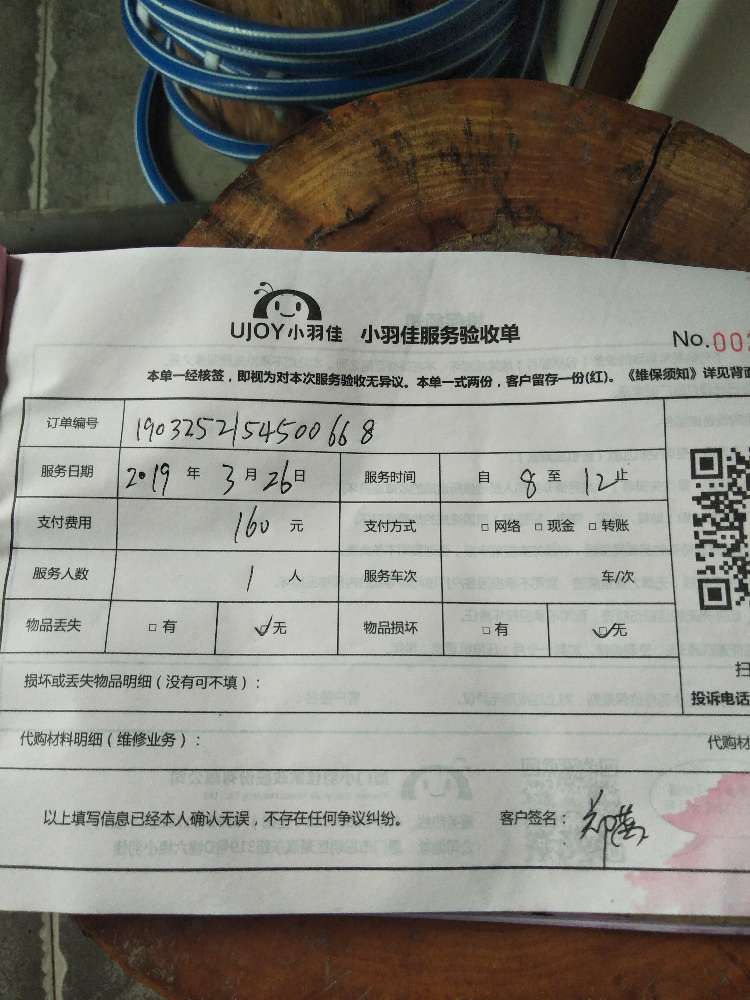 UJOY小羽佳 小羽佳服务验收单
No.002
本单一经核签，即视为对本次服务验收无异议。本单一式两份，客户留存一份(红)。《维保须知》详见背面
订单编号 190325215450066 8
服务日期 2019 年 3 月 26 日 服务时间 自 8 至 12 止
支付费用 160 元 支付方式 □ 网络 □ 现金 □ 转账
服务人数 1 人 服务车次 车/次
物品丢失 □ 有 ☑ 无 物品损坏 □ 有 ☑ 无
损坏或丢失物品明细（没有可不填）：
扫
投诉电话
代购材料明细（维修业务）： 代购材
以上填写信息已经本人确认无误，不存在任何争议纠纷。 客户签名：